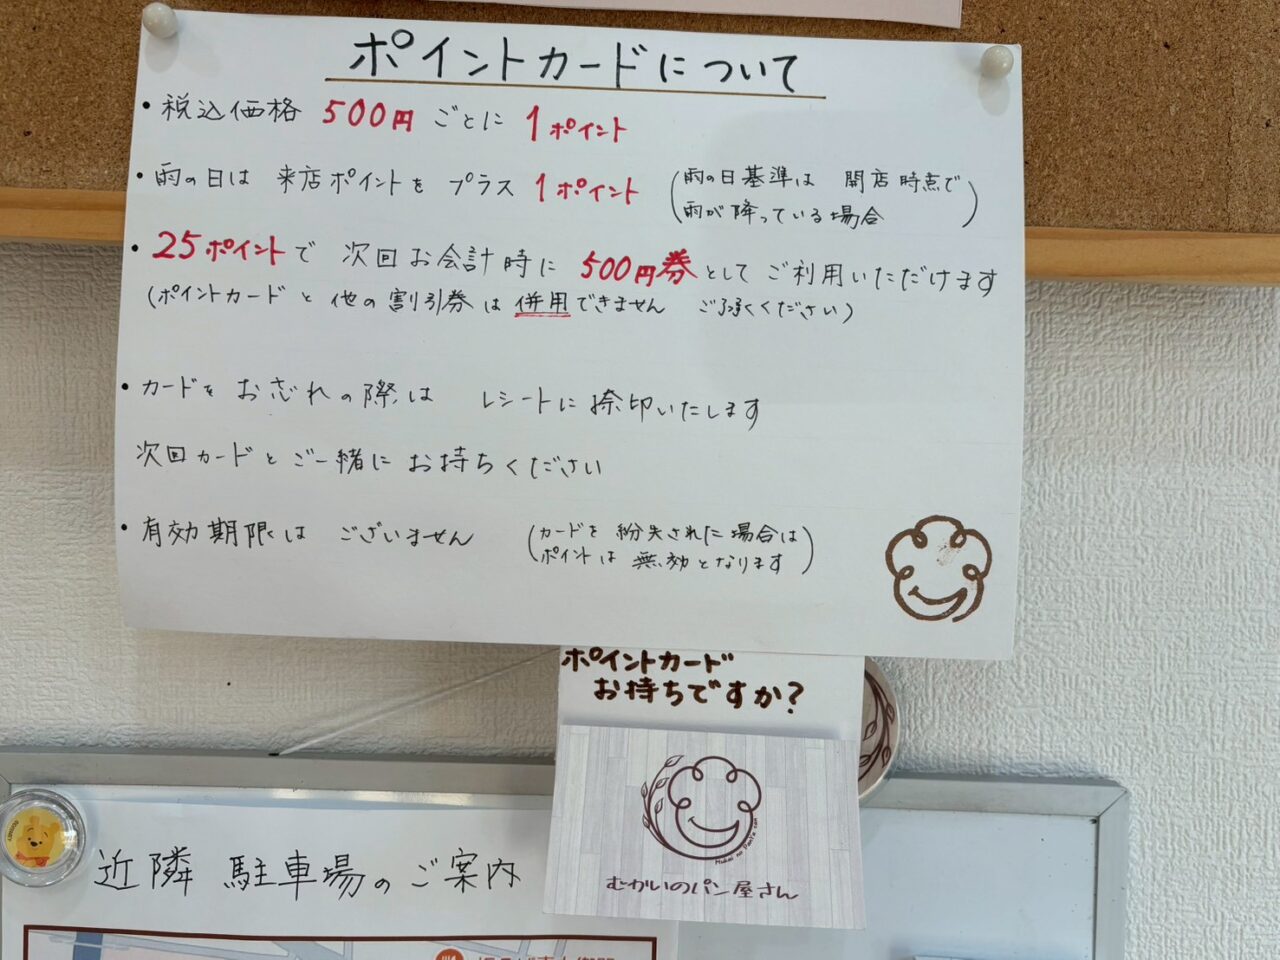 ポイントカードについて
・税込価格 500円 ごとに 1ポイント
・雨の日は 来店ポイントを プラス 1ポイント (雨の日基準は 開店時点で
雨が降っている場合)
・25ポイントで 次回お会計時に 500円券としてご利用いただけます
(ポイントカードと他の割引券は併用できません ご了承ください)
・カードをお忘れの際は レシートに捺印いたします
次回カードとご一緒にお持ちください
・有効期限は ございません (カードを紛失された場合は
ポイントは無効となります)
ポイントカード
お持ちですか?
Mukai no Panya san
むかいのパン屋さん
近隣 駐車場のご案内